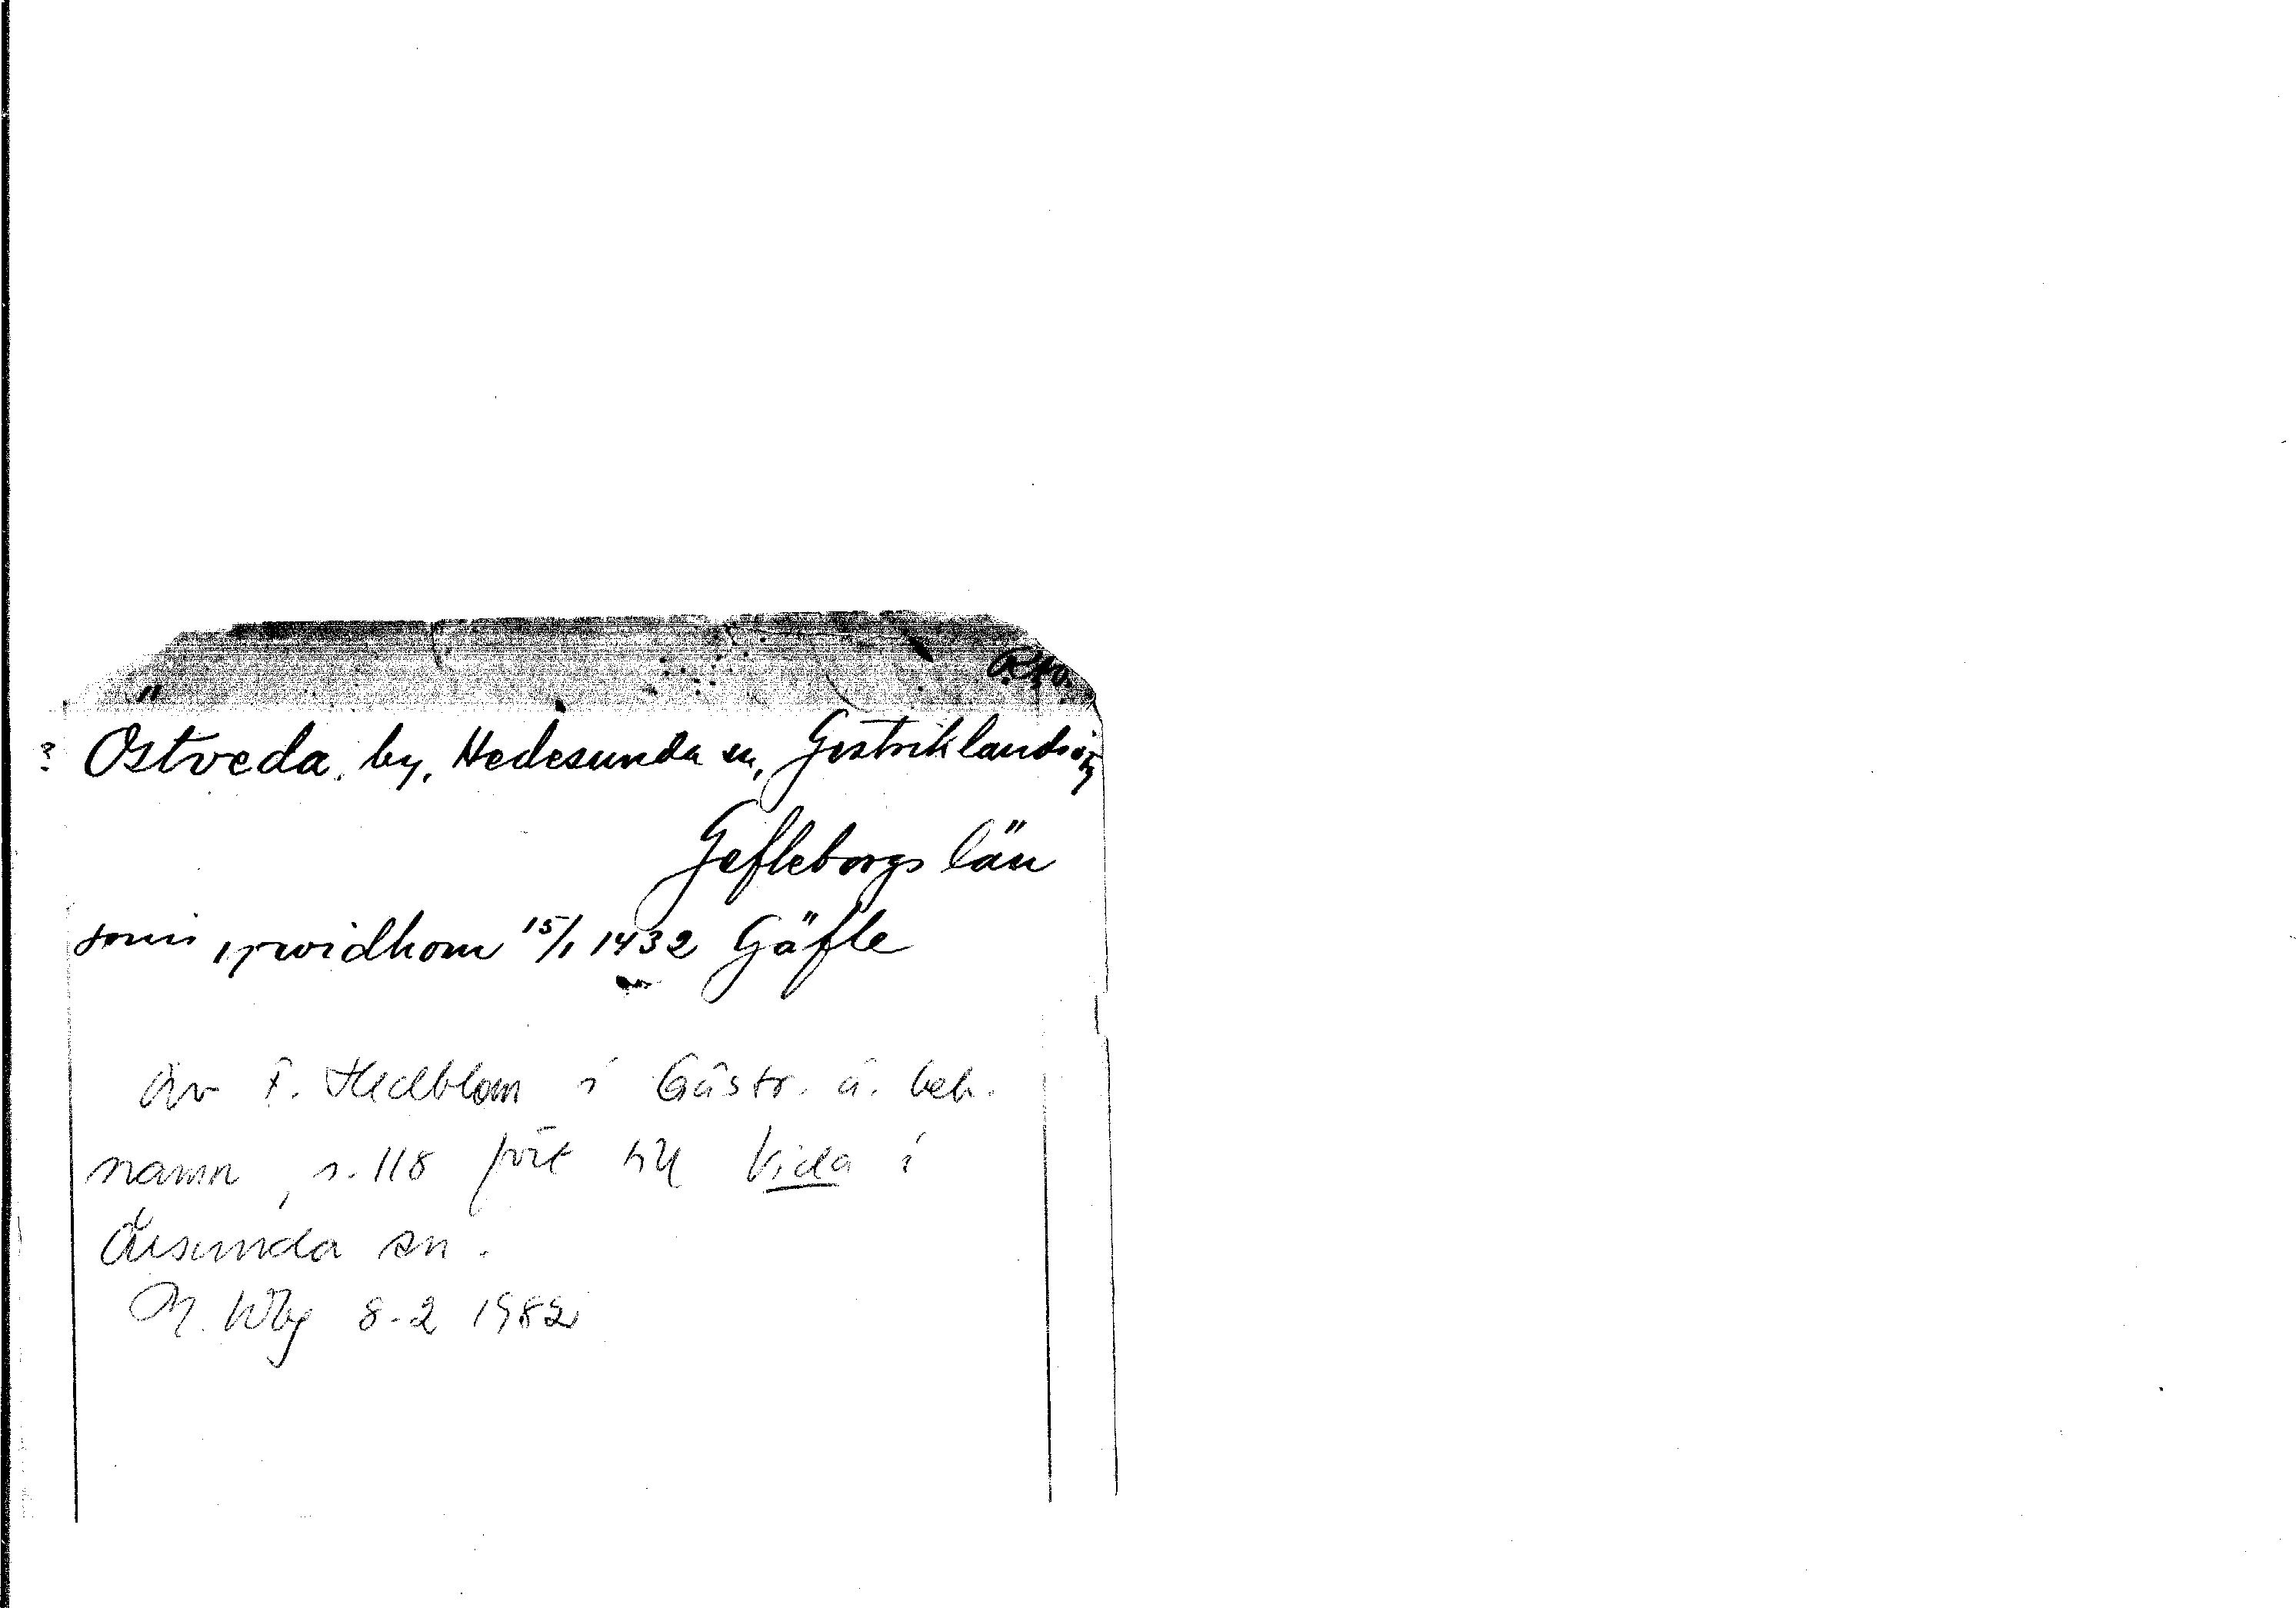 ? Östveda, by, Hedesunda sn, Gestriklands
Gefleborgs län
widhom 15/1 1432 Gäfle
Av F. Hedblom i Gästr. ä. beb.
namn, s. 118 fört till Vida i
Årsunda sn.
M. Wbg 8-2 1982